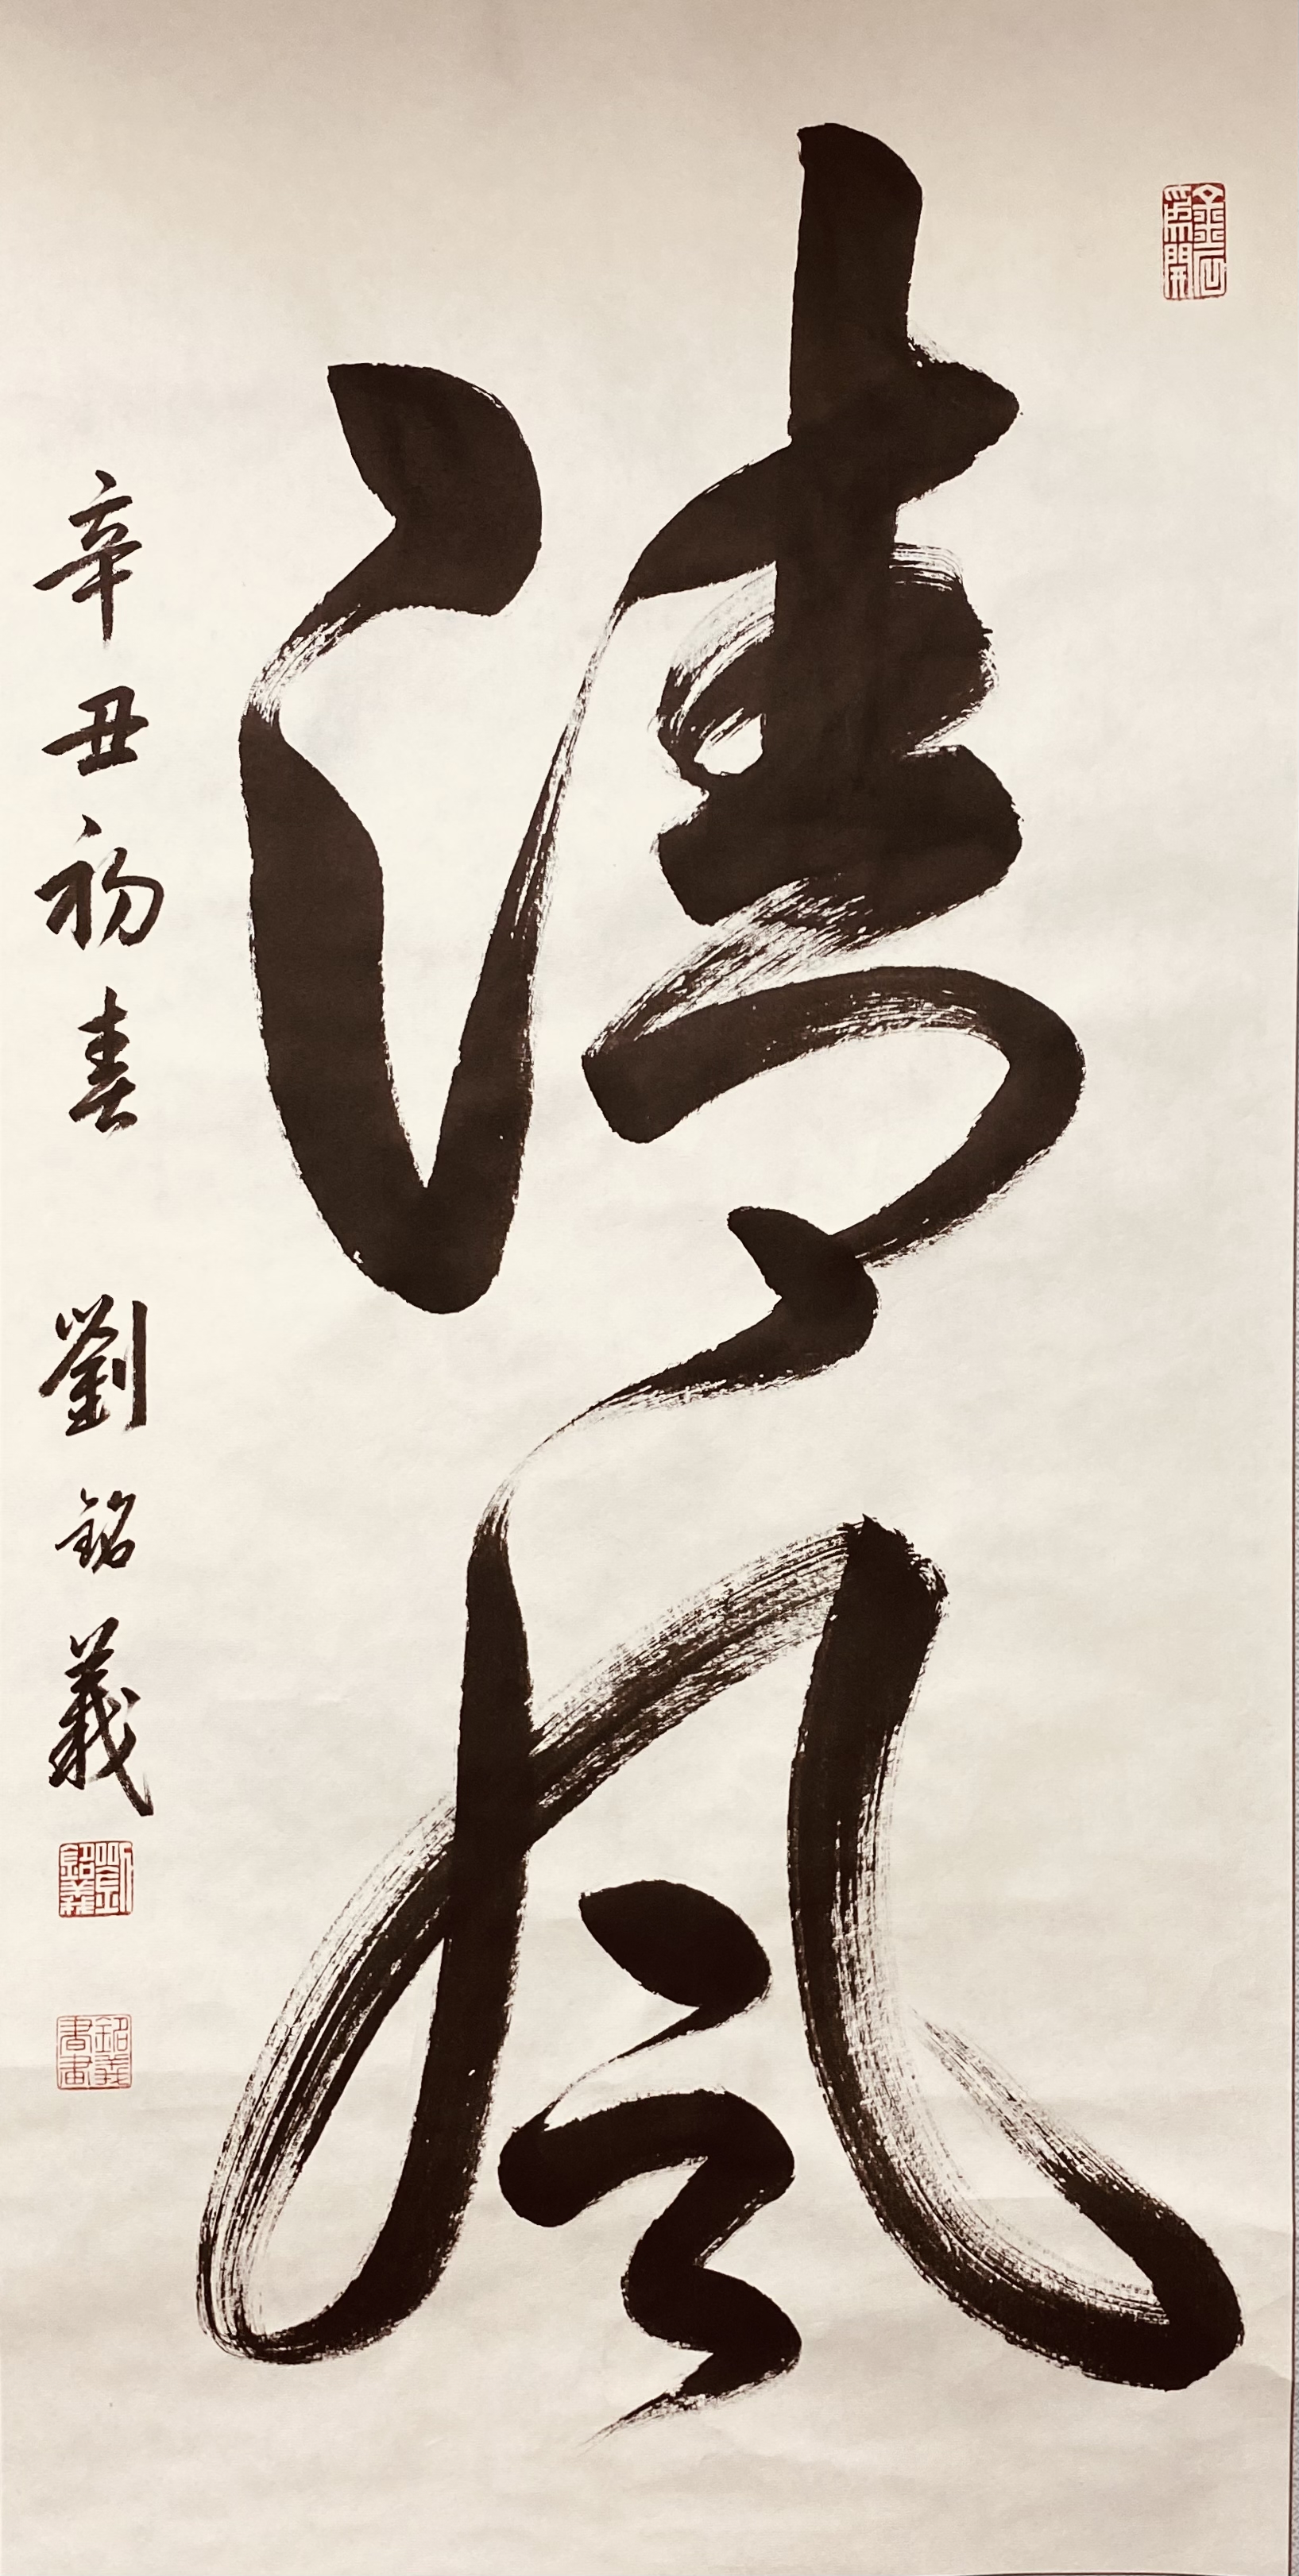 清風
辛丑初春 劉銘義
金石為開
劉銘義
銘義書畫